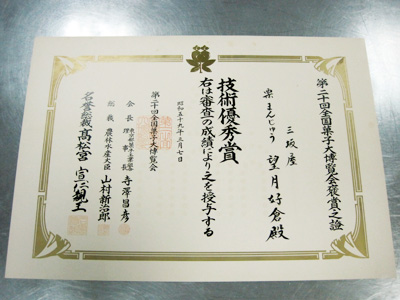 第二十回全国菓子大博覧会褒賞之證
三坂屋
栗まんじゅう 望月好倉殿
技術優秀賞
右は審査の成績により之を授与する
昭和五十九年三月七日
第二十回全国菓子大博覧会
会長 理事長 寺澤昌彦
総裁 農林水産大臣 山村新治郎
名誉総裁 高松宮宣仁親王